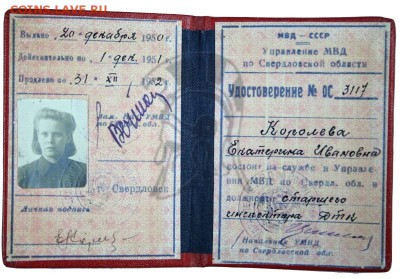 COINS.LAVE.RU
Выдано 20 декабря 1950 г.
Действительно по 1 дек. 1951
Продлено по 31 XII 1952
Зам. Нач. УМВД
по обл.
г. Свердловск
Личная подпись
МВД — СССР
Управление МВД
по Свердловской области
Удостоверение № ОС 3117
Королева
Екатерина Ивановна
состоит на службе в Управле-
нии МВД по Свердл. обл. в
должности старшего
инспектора ДТК
Начальник УМВД
по Свердловской обл.